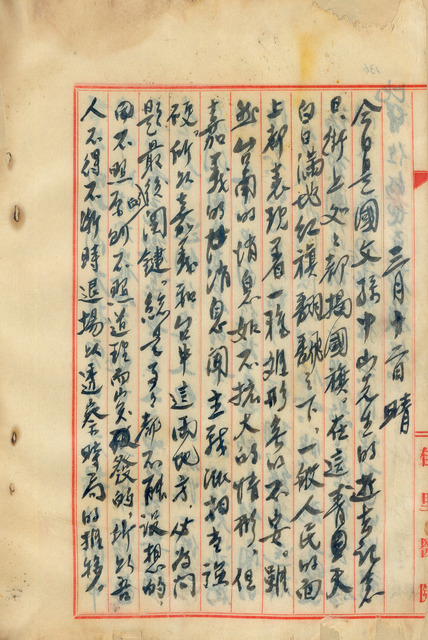 三月十二日 晴
今日是國父孫中山先生的逝去記念
日、街上處々都揭國旗。在這青天
白日滿地紅旗飄飄之下、一般人民的面
上都表現着一種難形容的不安。雖
然台南的消息如不擴大的情形、但
嘉義的消息聞主戰派相當強
硬。所以嘉義和台中這兩地方、必為問
題最後關鍵。總是事々都不能設想的、
因不照原則不照道理而突發的、所以吾
人不得不暫時退場以透察時局的推移。